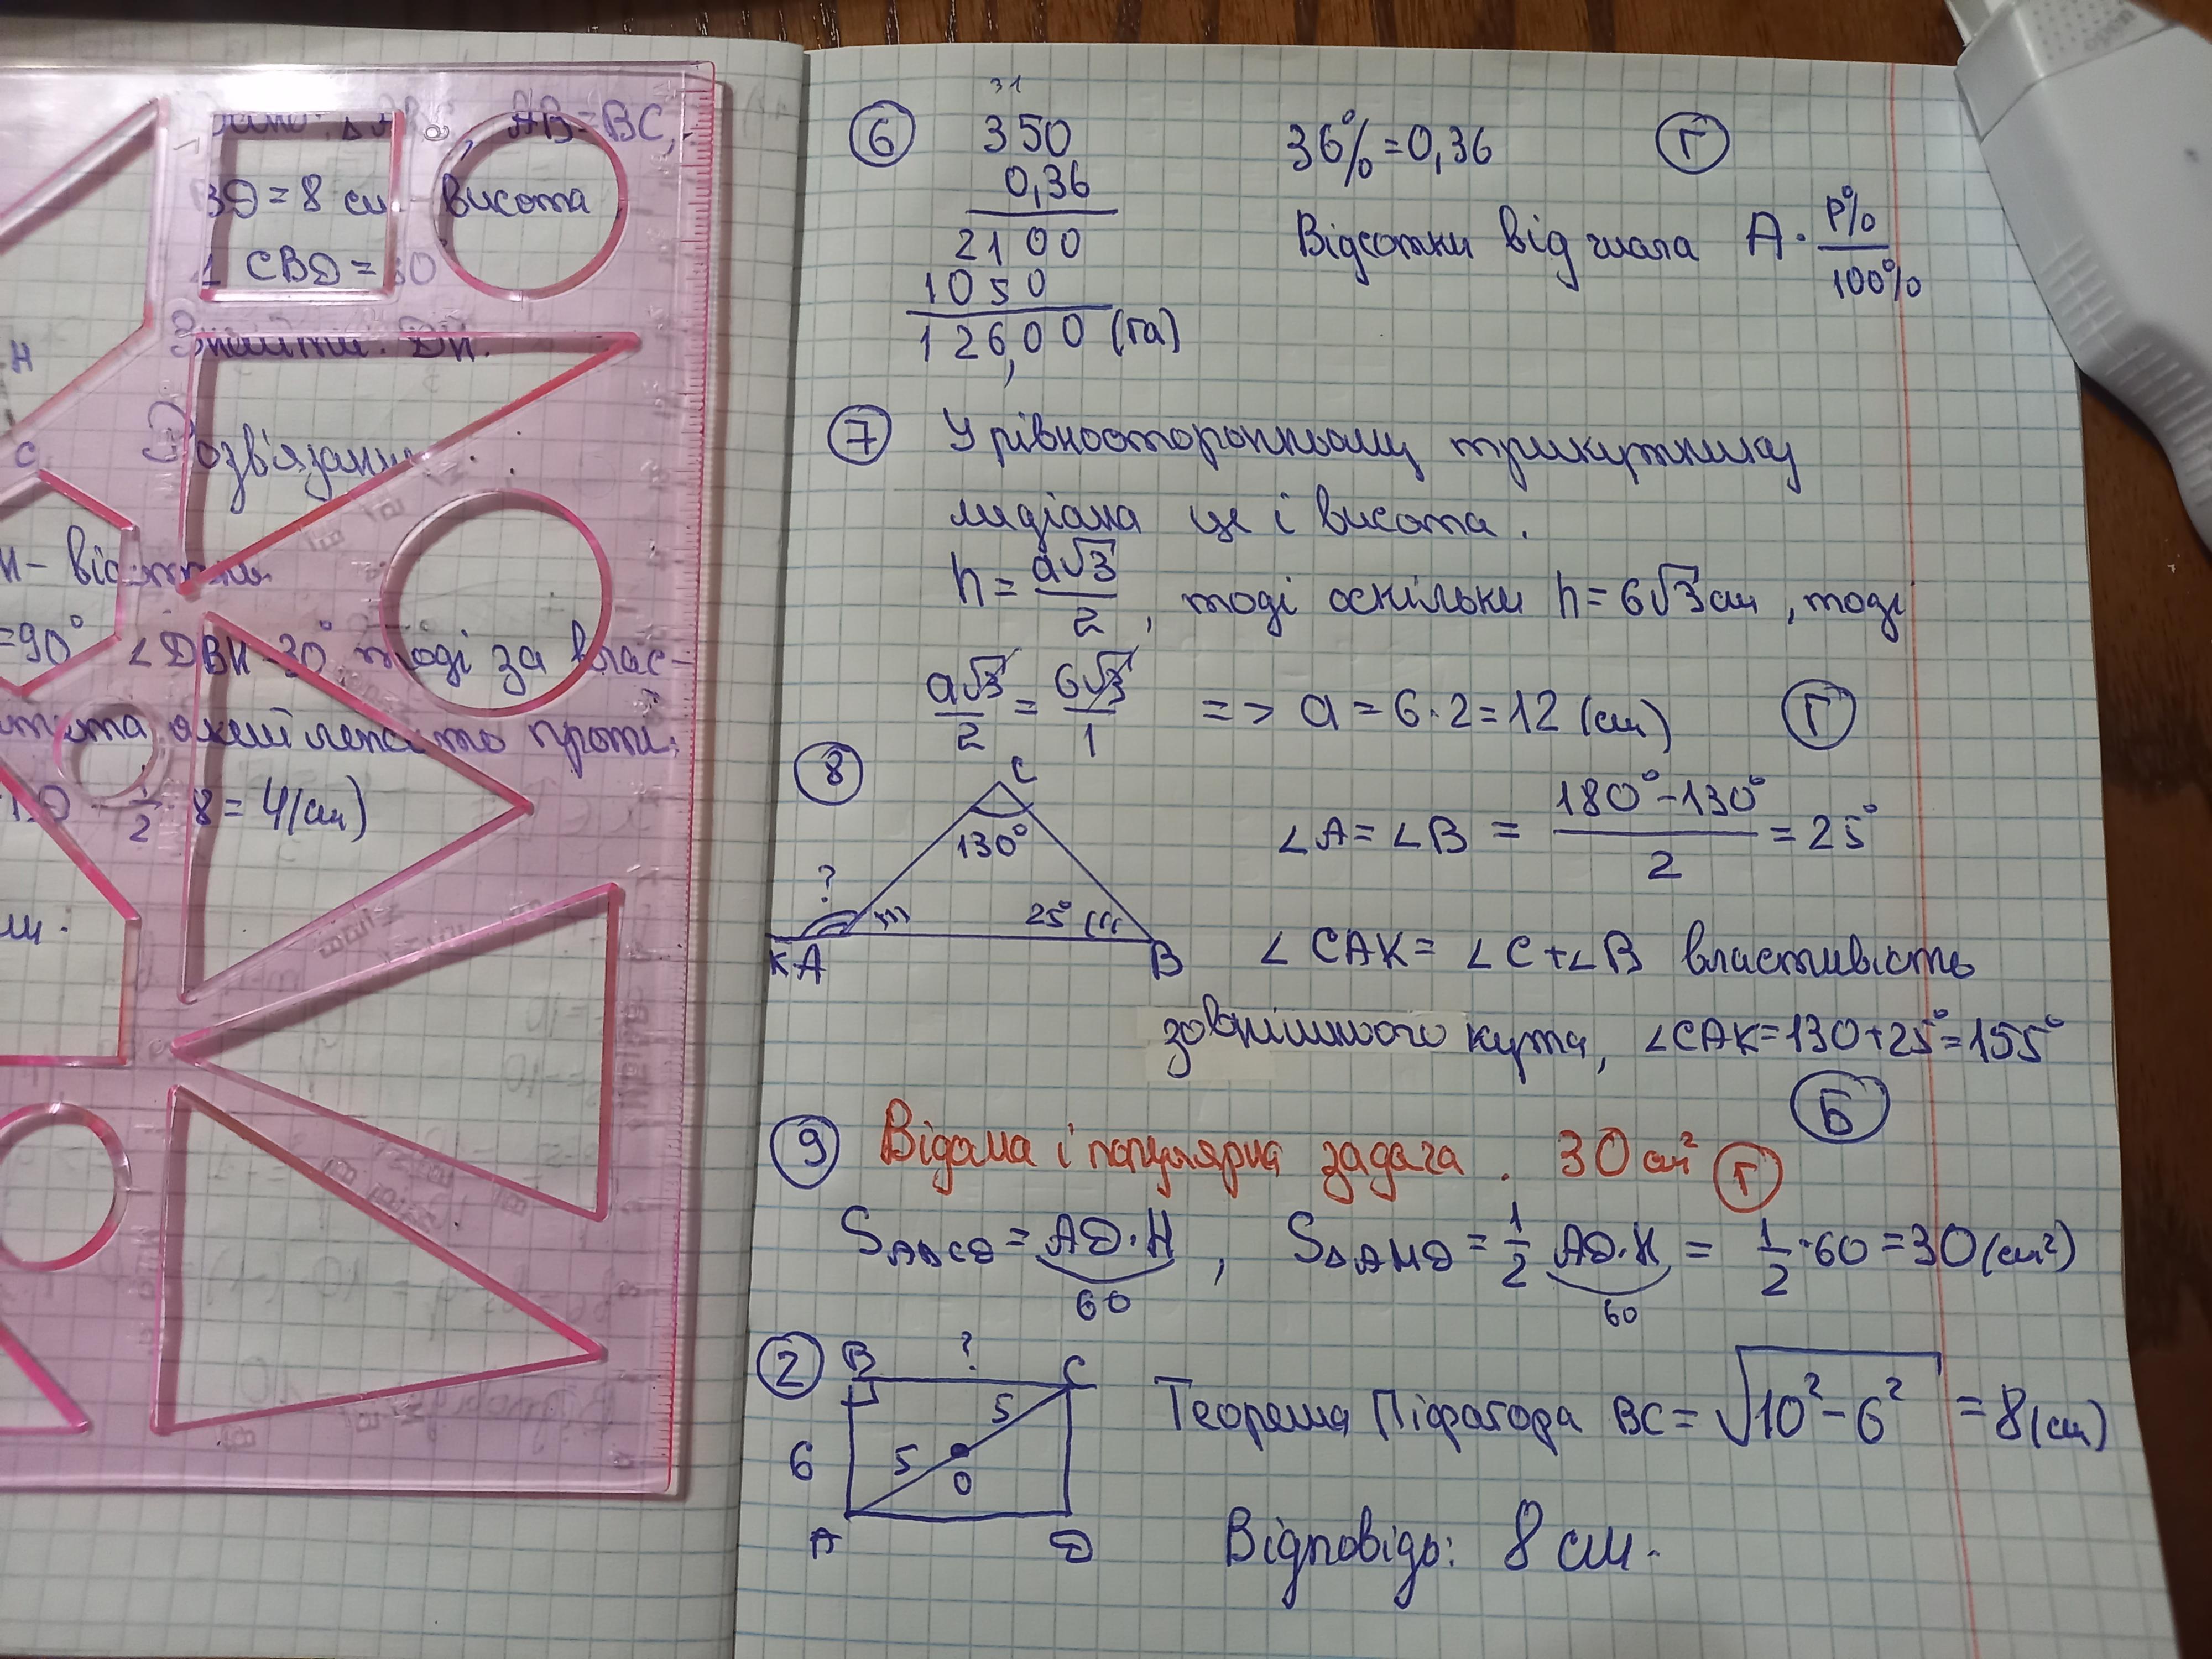 AB=BC,
BD=8 см - висота
∠ CBD=30°
Знайти: DH.
Розв'язання.
=90° ∠DBH=30° тоді за влас-
8=4(см)
⑥ 31
350
0,36
2100
1050
126,00 (га)
36%=0,36 Ⓖ Г
Відсотки від числа A · P% / 100%
⑦ У рівносторонньому трикутнику
медіана це і висота.
h = a√3 / 2, тоді оскільки h=6√3 см, тоді
a√3 / 2 = 6√3 / 1 => a=6·2=12 (см) Г
⑧ C
130°
?
25°
K A B
∠A=∠B = 180°-130° / 2 = 25°
∠ CAK= ∠C+∠B властивість
зовнішнього кута, ∠CAK=130+25°=155°
Б
⑨ Відома і популярна задача. 30 см² Г
S ABCD = AD·H, S△AMD = 1/2 AD·H = 1/2·60=30(см²)
60 60
② B ? C
5
6 5 O
A D
Теорема Піфагора BC=√10²-6² =8(см)
Відповідь: 8 см.